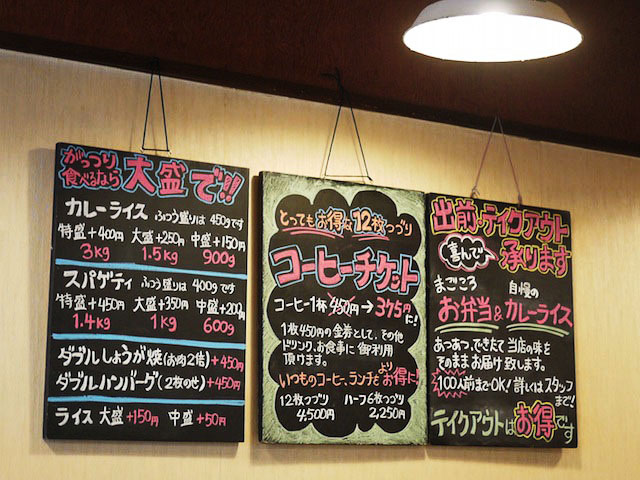 がっつり
食べるなら 大盛で!!
カレーライス ふつう盛りは 450gです
特盛+400円 大盛+250円 中盛+150円
3kg 1.5kg 900g
スパゲティ ふつう盛りは 400gです
特盛+450円 大盛+350円 中盛+200円
1.4kg 1kg 600g
ダブルしょうが焼(お肉2倍)+450円
ダブルハンバーグ(2枚のせ)+450円
ライス 大盛+150円 中盛+50円
とってもお得な12枚つづり
コーヒーチケット
コーヒー1杯 450円→375円に!
1枚450円の金券として、その他
ドリンク、お食事に御利用
頂けます。
いつものコーヒー、ランチをよりお得に!
12枚つづり ハーフ6枚つづり
4,500円 2,250円
出前・テイクアウト
喜んで♪ 承ります
まごころ 自慢の
お弁当&カレーライス
あつあつ、できたて 当店の味を
そのままお届け致します。
100人前までOK! 詳しくは スタッフ
まで!
テイクアウトはお得です